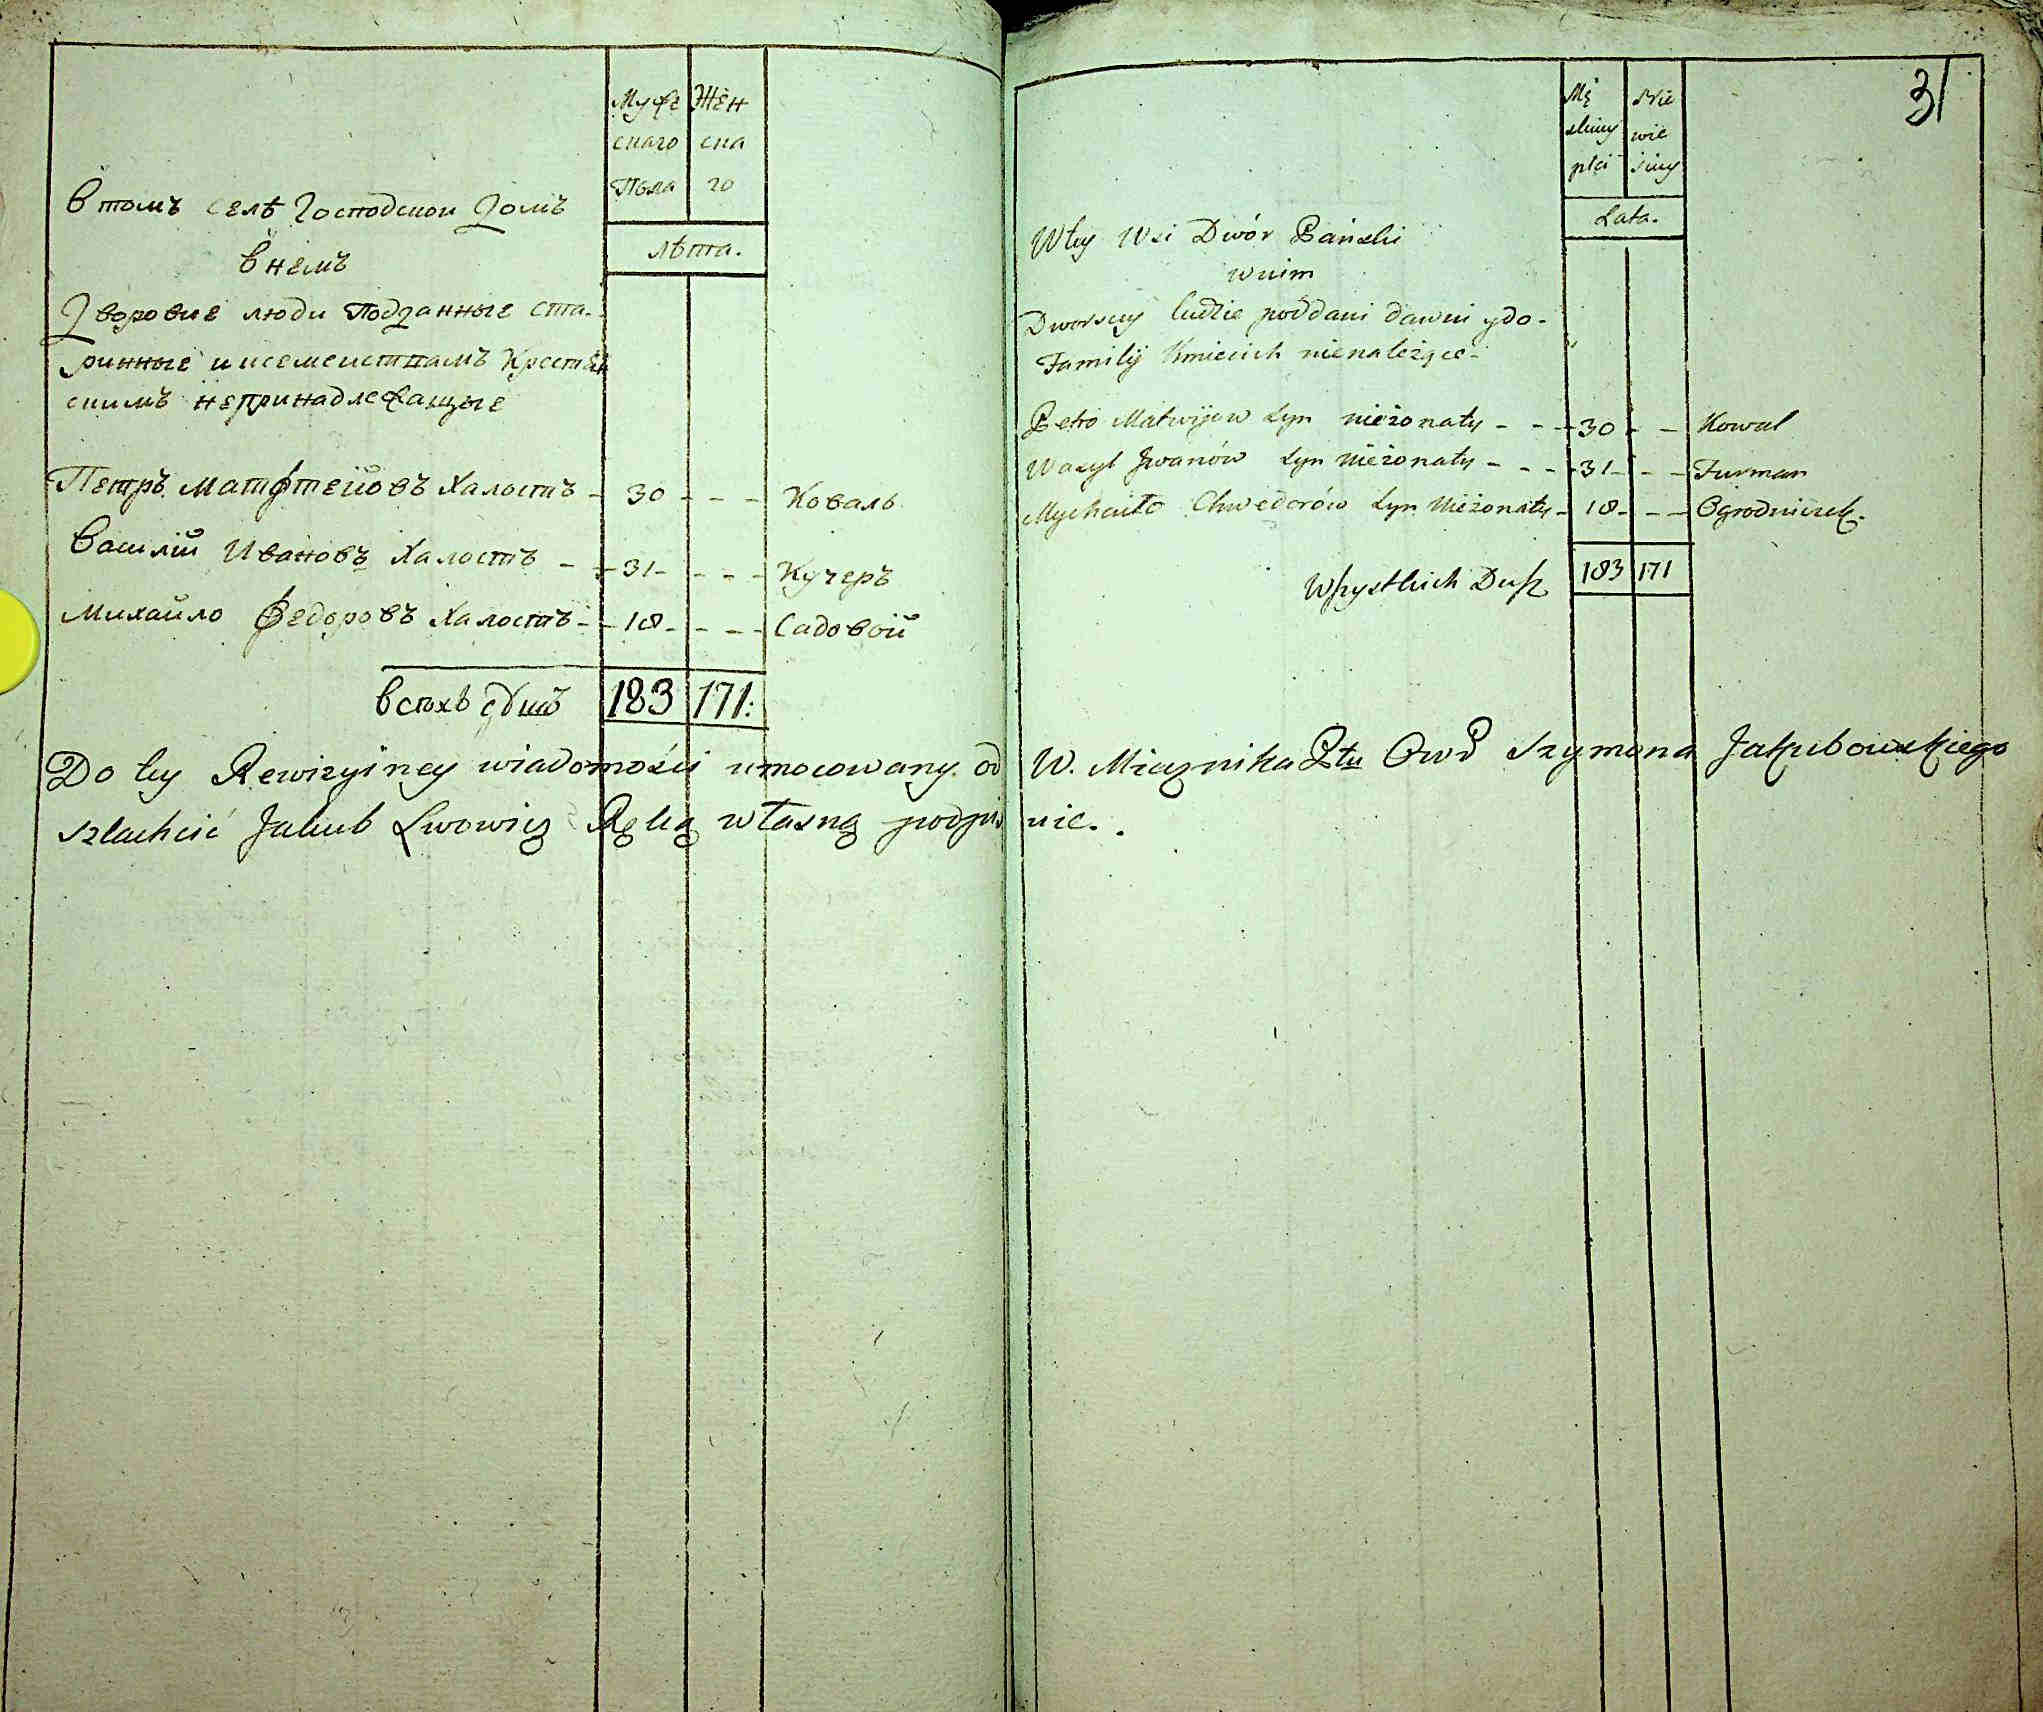 Муже Жен
скаго ска
Пола го
Лѣта.
В томъ селѣ Господскои домъ
в немъ
Дворовие люди Подданные ста-
ринные и ксемеистпамъ Крестян
скимъ непринадлежащые
Петръ Матфтейовъ Халостъ - 30 - - - Коваль
Василій Ивановъ Халостъ - - 31 - - - - Кучеръ
Михайло Федоровъ Халостъ - - 18 - - - - Садовой
всѣхъ душъ 183 171:
31
Mę Nie
skiey wie
płci sciey
Lata.
W tey Wsi Dwór Pański
w nim
Dworscy ludzie poddani dawni y do-
Familij Kmiecich nienależące-
Petro Matwijow Syn nieżonaty - - - 30 - - Kowal
Wasyl Jwanów Syn Nieżonaty - - - 31 - - - Furman
Mychaiło Chwedorów Syn Nieżonaty - 18 - - - Ogrodniczek.
Wszystkich Dusz 183 171
Do tey Rewizyiney wiadomości umocowany od W. Miecznika Ptu Owr Szymona Jakubowskiego
Szlachcic Jakub Lwowicz Ręką własną podpis uie.